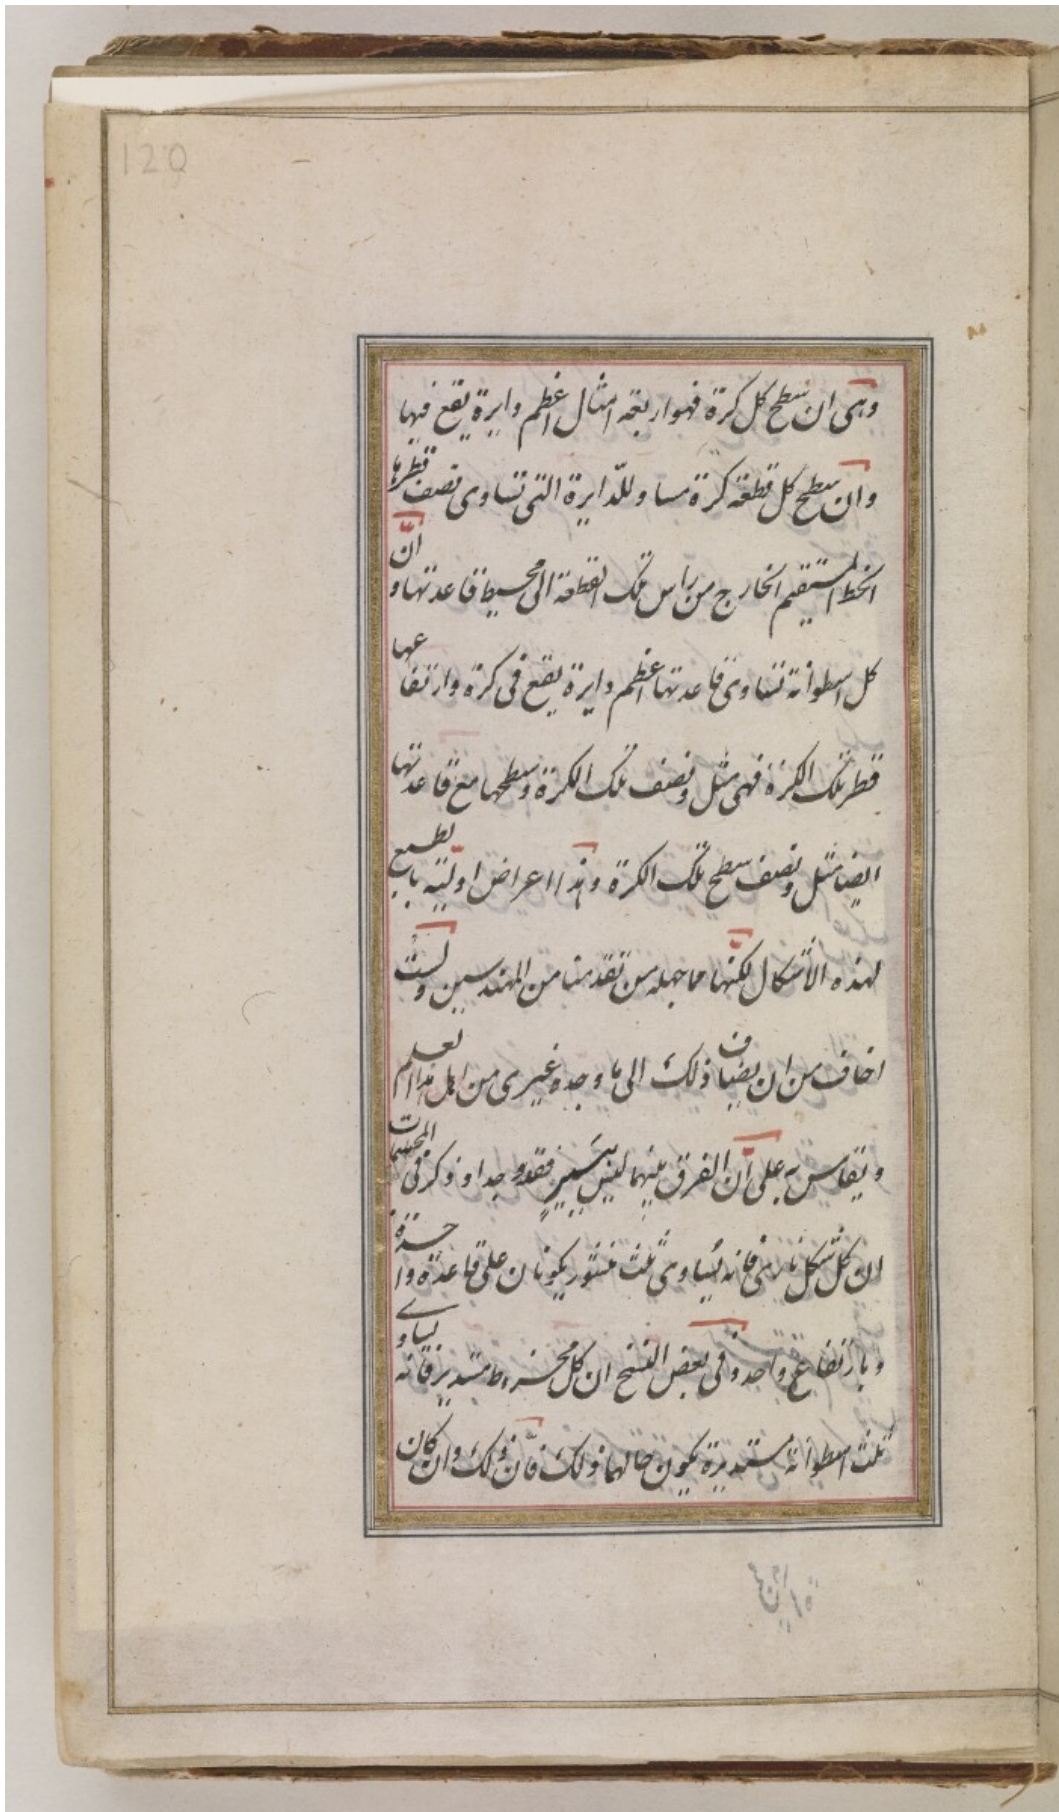 120
وهى ان سطح كل كرة فهو اربعة امثال اعظم دايرة يقع فيها
وان سطح كل قطعة كرة مساو للدايرة التى تساوى نصف قطرها
الخط المستقيم الخارج من راس تلك القطعة الى محيط قاعدتها و انّ
كل اسطوانة تساوى قاعدتها اعظم دايرة يقع فى كرة وارتفاعها
قطر تلك الكرة فهى مثل ونصف تلك الكرة وسطحها مع قاعدتها
ايضا مثل ونصف سطح تلك الكرة وهذا اعراض اولية بالطبع
لهذه الاشكال لكنّها مما جهله من تقدمنا من المهندسين ولست
اخاف من ان يضاف ذلك الى ما وجده غيرى من اهل هذا العلم
ويقاس به على انّ الفرق بينهما ليس بيسير فقد وجد اوذكر فى المجسمات
ان كل شكل نارى فانه يساوى ثلث منشور يكونان على قاعدة واحدة
وبارتفاع واحد وفى بعض النسخ ان كل مخروط مستدير فانه يساوى
ثلث اسطوانة مستديرة يكون حالها ذلك فانّ ذلك وان كان